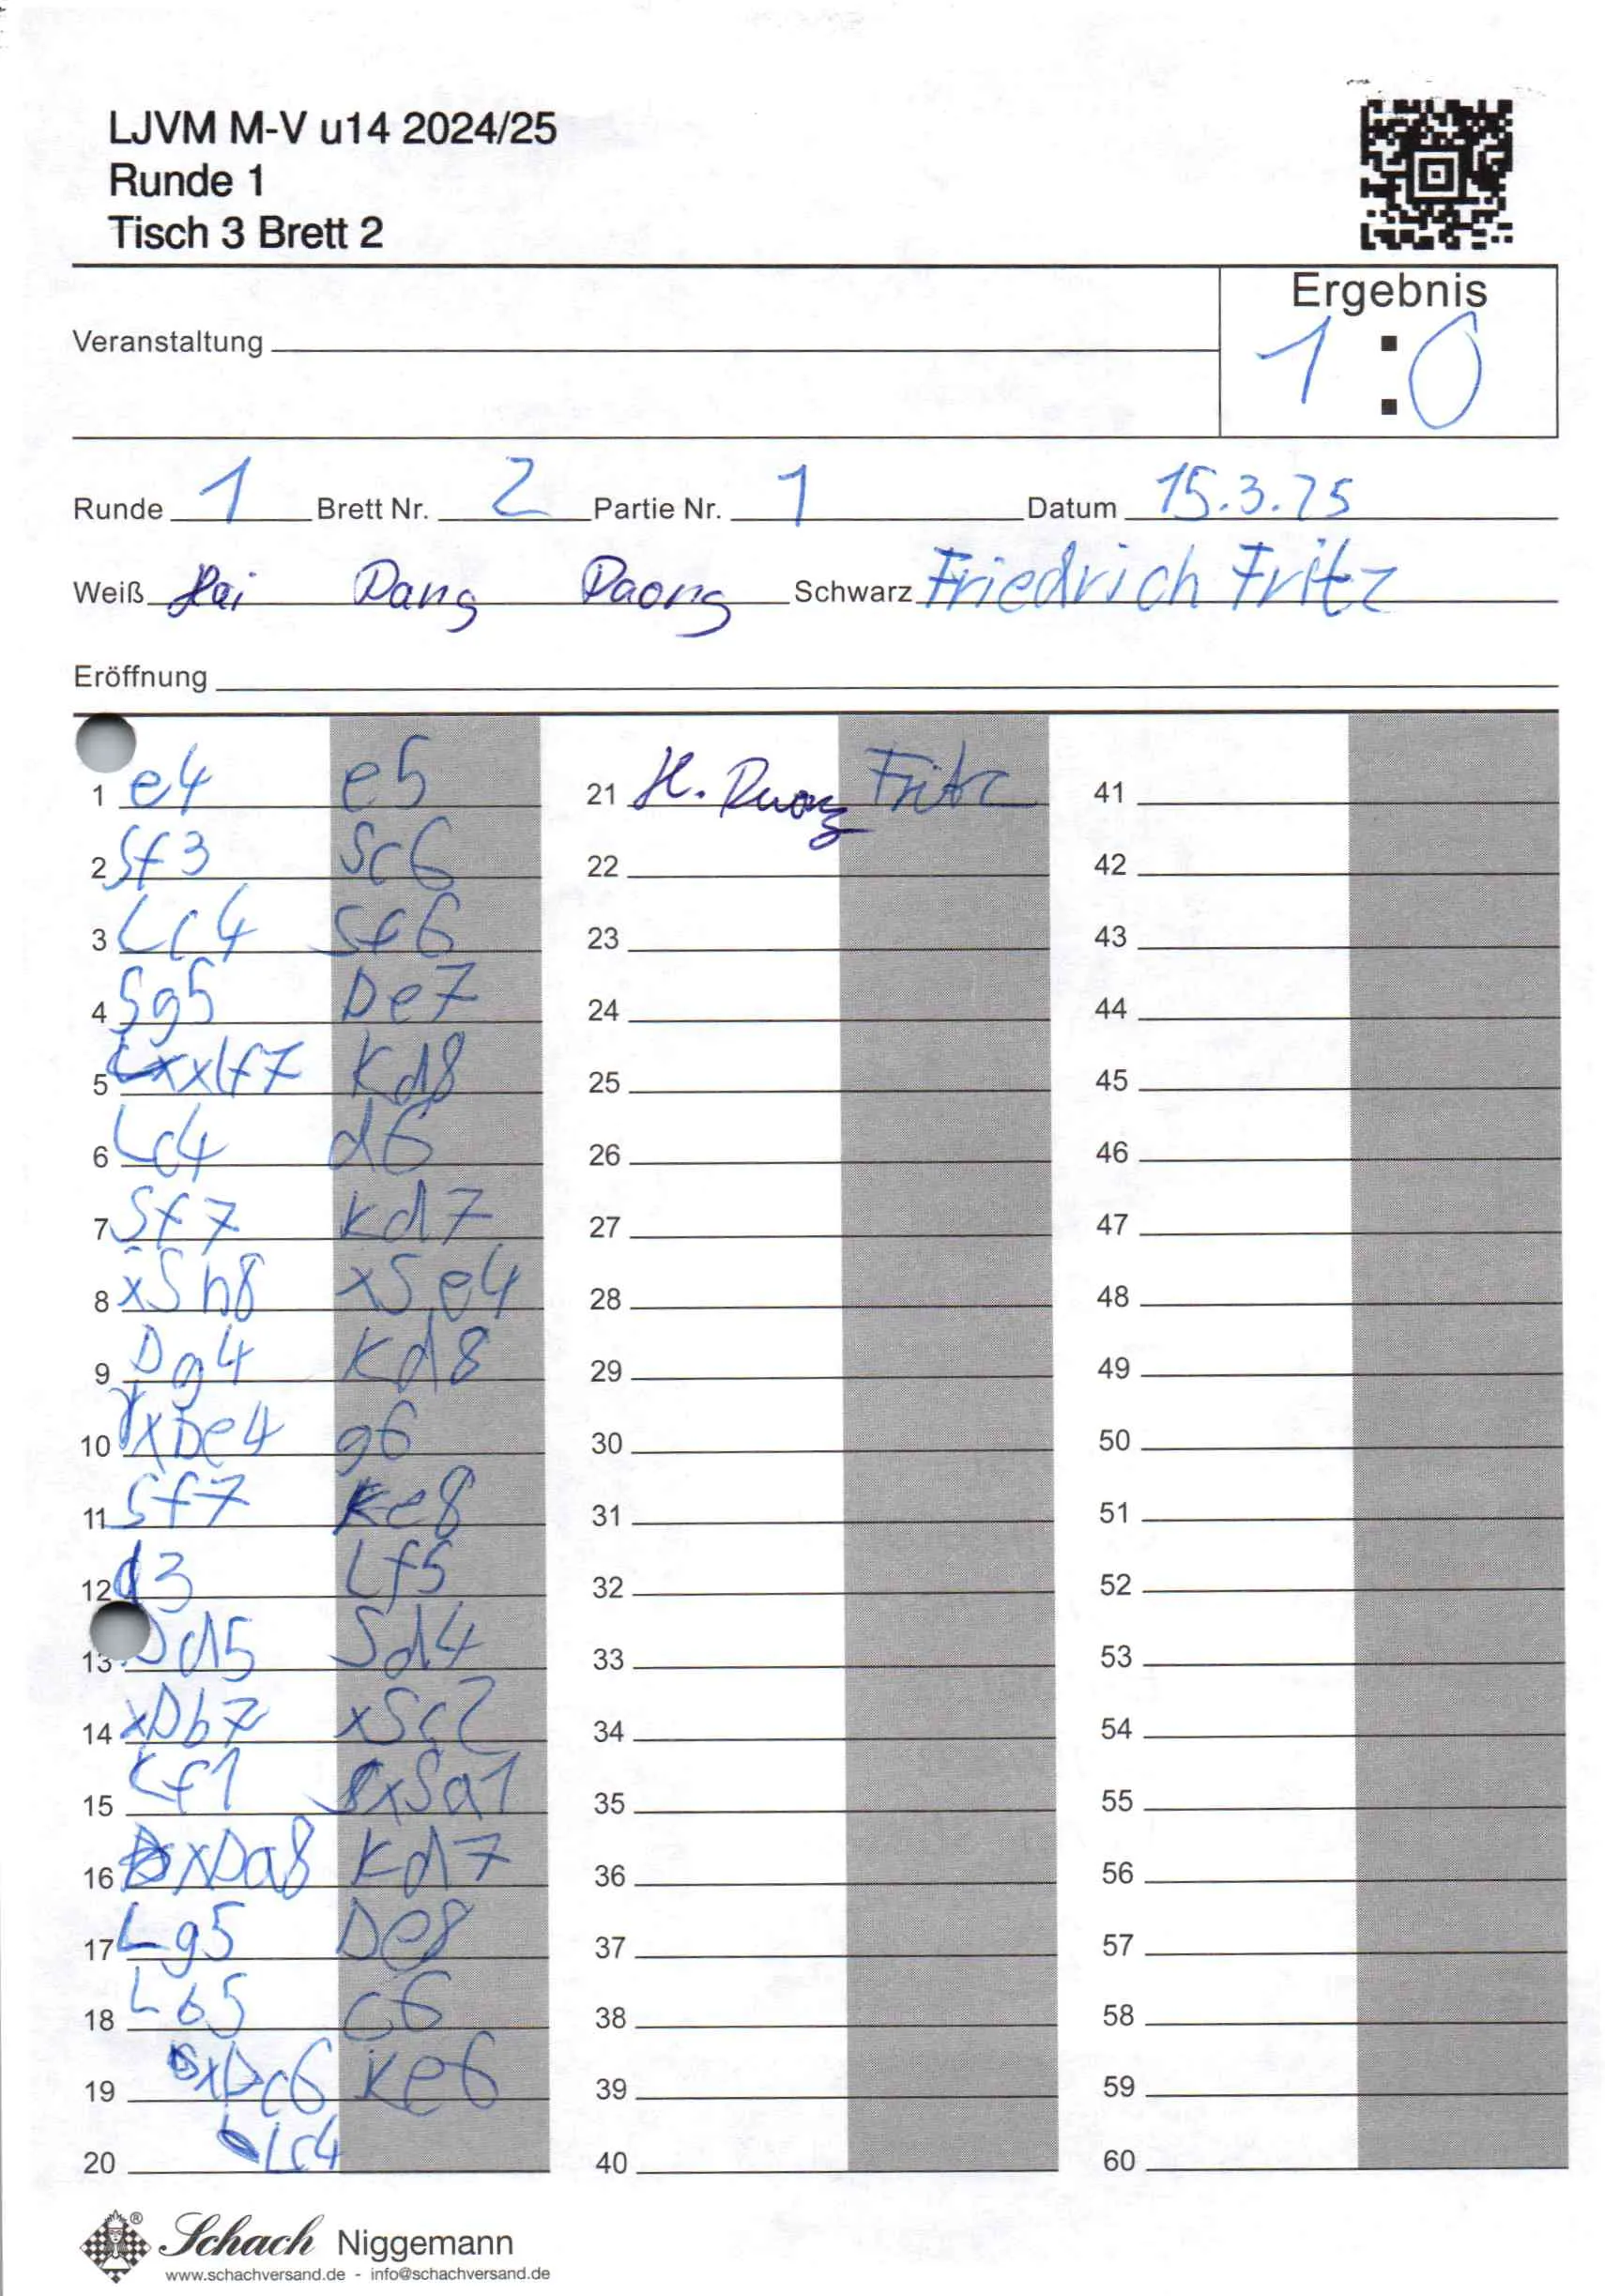 LJVM M-V u14 2024/25
Runde 1
Tisch 3 Brett 2
Ergebnis
Veranstaltung
1 : 0
Runde 1 Brett Nr. 2 Partie Nr. 1 Datum 15.3.25
Weiß Hai Dang Duong Schwarz Friedrich Fritz
Eröffnung
1 e4 e5 21 H. Duong Fritz 41
2 Sf3 Sc6 22 42
3 Lc4 Sf6 23 43
4 Sg5 De7 24 44
5 xLf7 Kd8 25 45
6 Lc4 d6 26 46
7 Sf7 Kd7 27 47
8 xSh8 xSe4 28 48
9 Dg4 Kd8 29 49
10 xDe4 g6 30 50
11 Sf7 Ke8 31 51
12 d3 Lf5 32 52
13 Dd5 Sd4 33 53
14 xDb7 xSc2 34 54
15 Kf1 xSa1 35 55
16 xDa8 Kd7 36 56
17 Lg5 De8 37 57
18 Lb5 c6 38 58
19 xDc6 Ke6 39 59
20 Lc4 40 60
Schach Niggemann
www.schachversand.de - info@schachversand.de